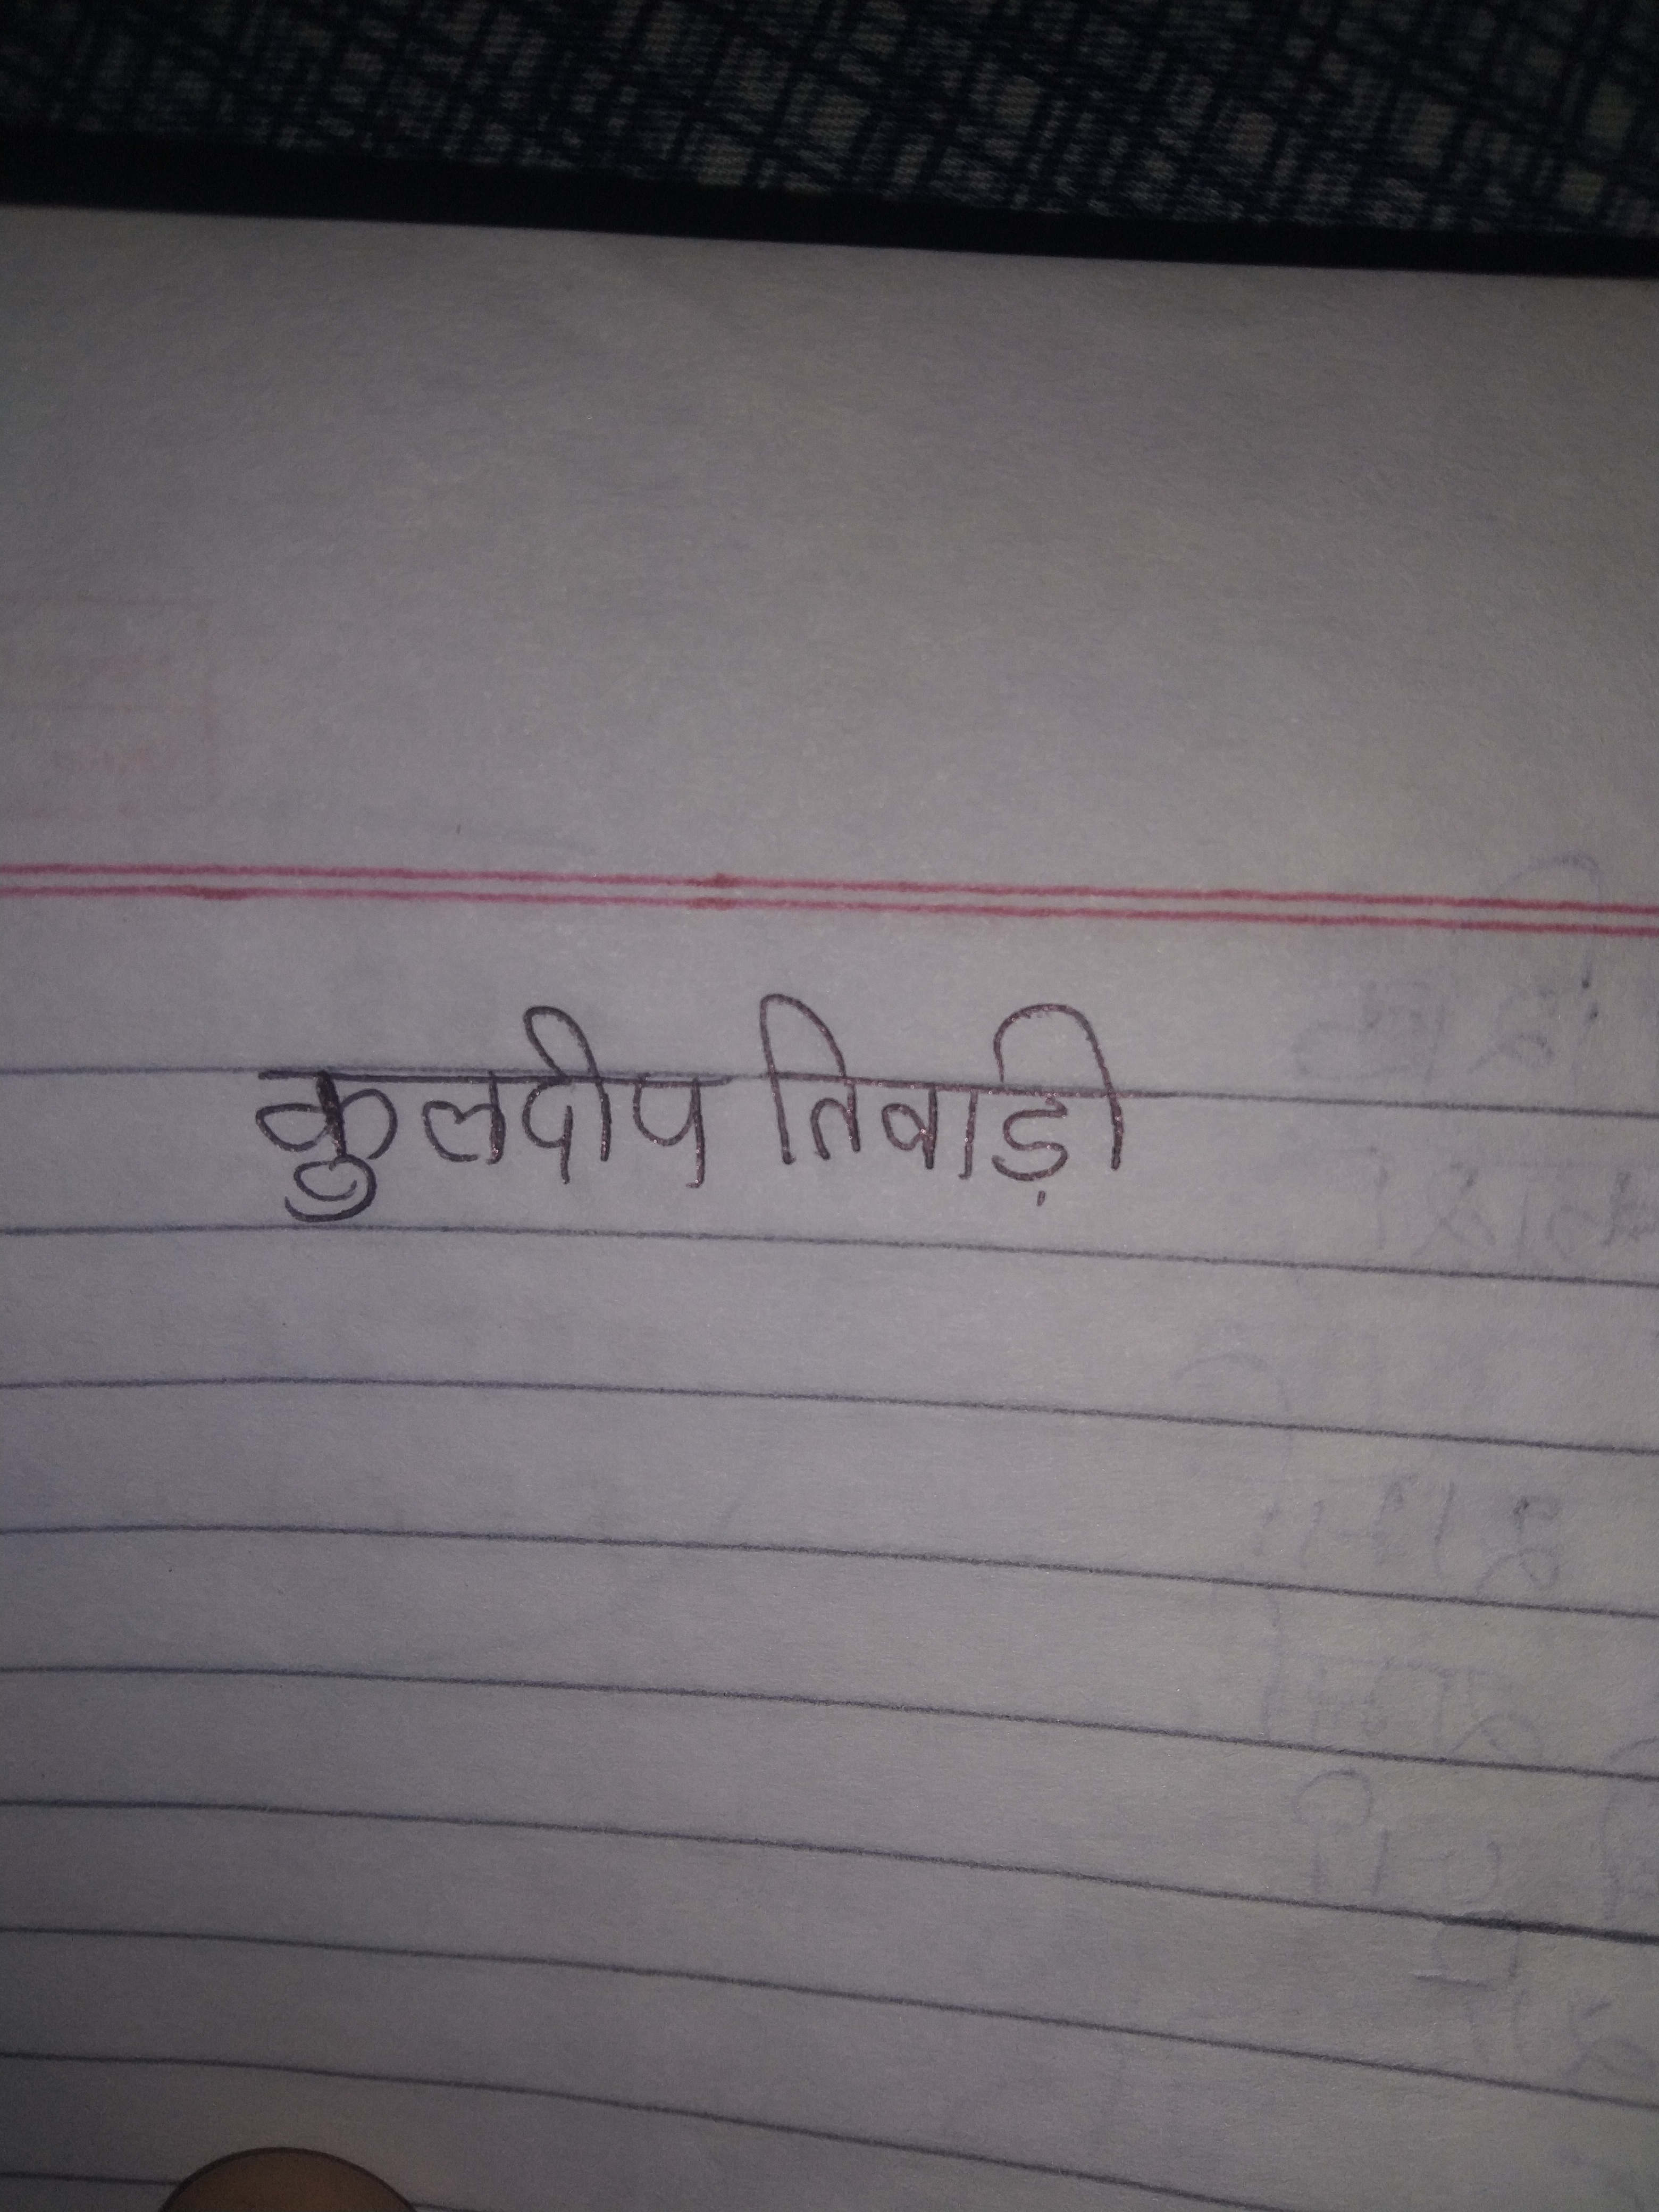 कुलदीप तिवाड़ी